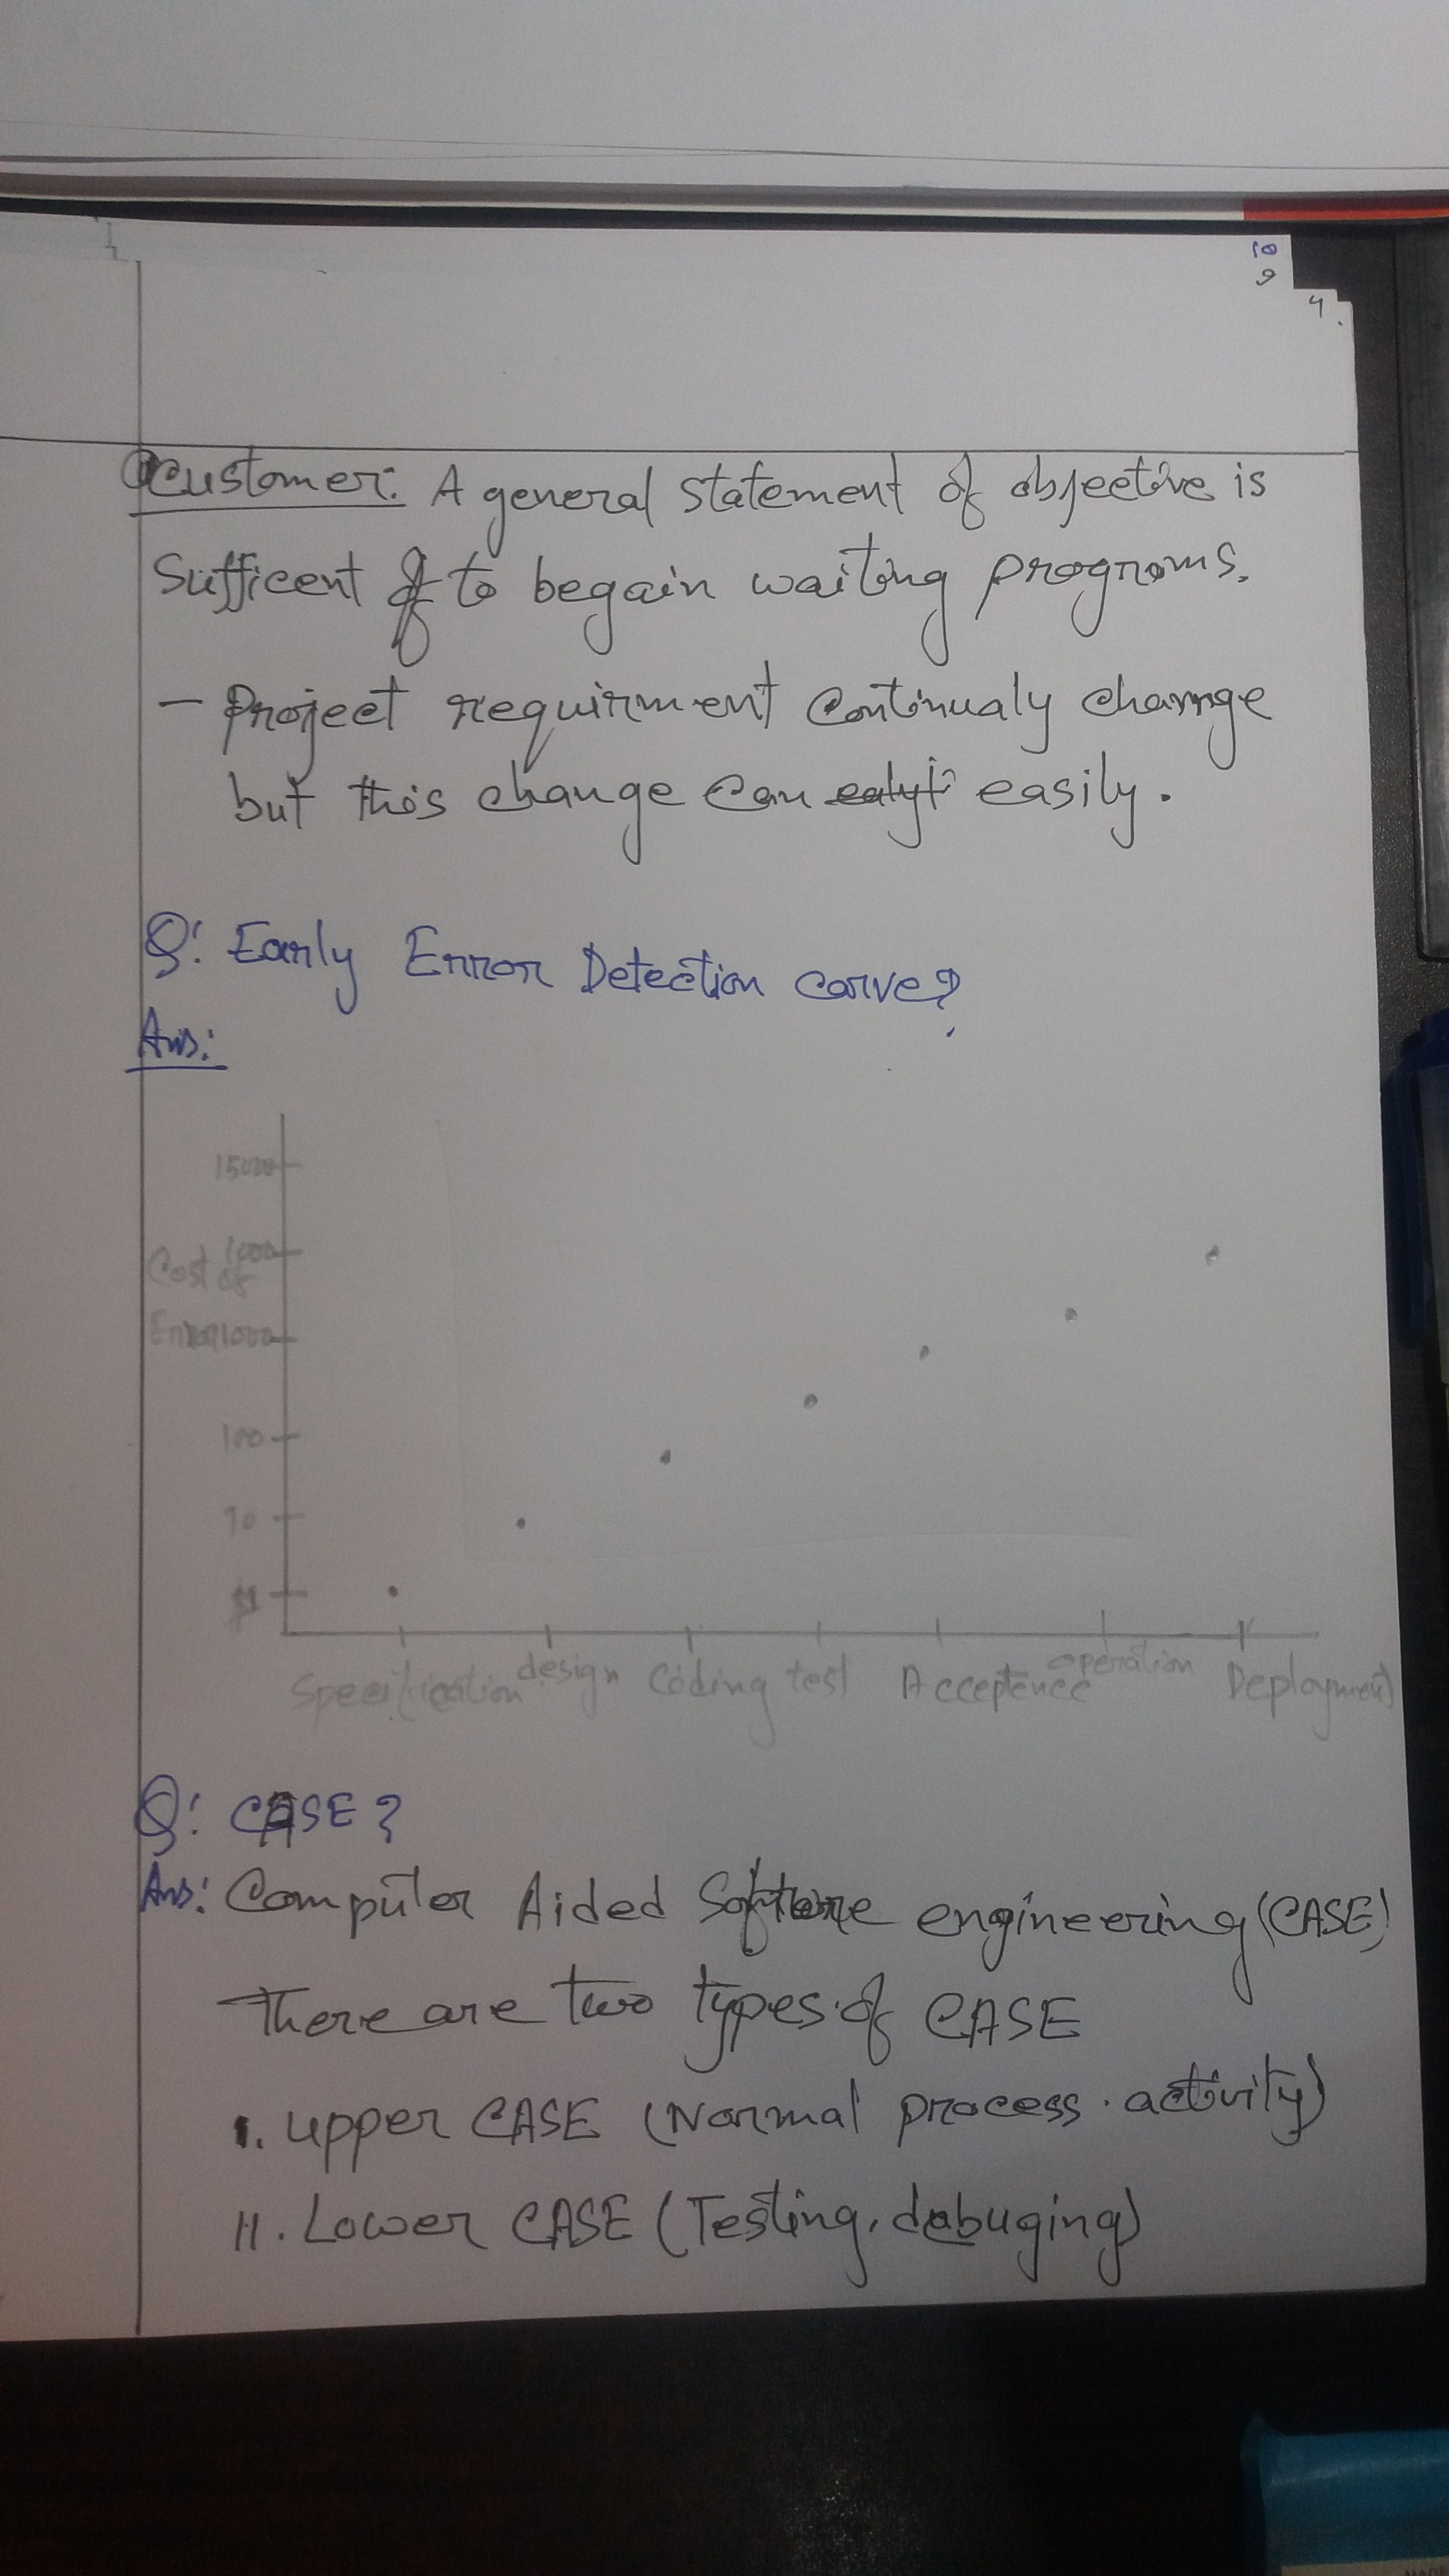 10
9
4.
Customer: A general statement of objective is
Sufficent to begain waiting programs.
- Project requirment continualy change
but this change can easily.
Q: Early Error Detection corve?
Ans:
15000
1000
Cost of
Error 1000
100
10
$1
Specification design Coding test Acceptence operation Deployment
Q: CASE?
Ans: Computer Aided Software engineering (CASE)
There are two types of CASE
I. upper CASE (Normal process activity)
II. Lower CASE (Testing, debuging)